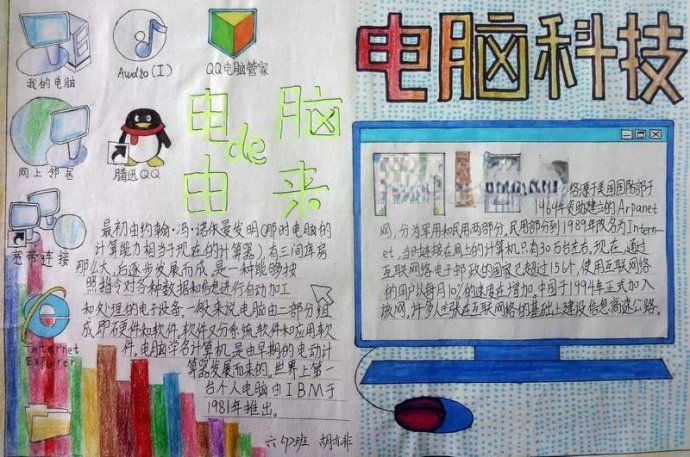 我的电脑
Audio(I)
QQ电脑管家
网上邻居
腾迅QQ
宽带连接
Internet
Explorer
电de脑
由来
最初由约翰·冯·诺依曼发明(那时电脑的
计算能力相当于现在的计算器),有三间库房
那么大,后逐步发展而成,是一种能够按
照指令对各种数据和信息进行自动加工
和处理的电子设备。一般来说,电脑由二部分组
成,即硬件和软件,软件又分系统软件和应用软
件。电脑学名计算机,是由早期的电动计
算器发展而来的。世界上第一
台个人电脑由IBM于
1981年推出。
六 班 胡
电脑科技
络源于美国国防部于
1969年资助建立的Arpanet
网,分为军用和民用两部分,民用部分到1989年改名为Inter-
net,当时连接在网上的计算机只有30万台左右。现在,通过
互联网络电子邮政的国家已超过154个,使用互联网络
的用户以每月10%的速度在增加。中国于1994年正式加入
该网。许多人主张在互联网络的基础上建设信息高速公路。